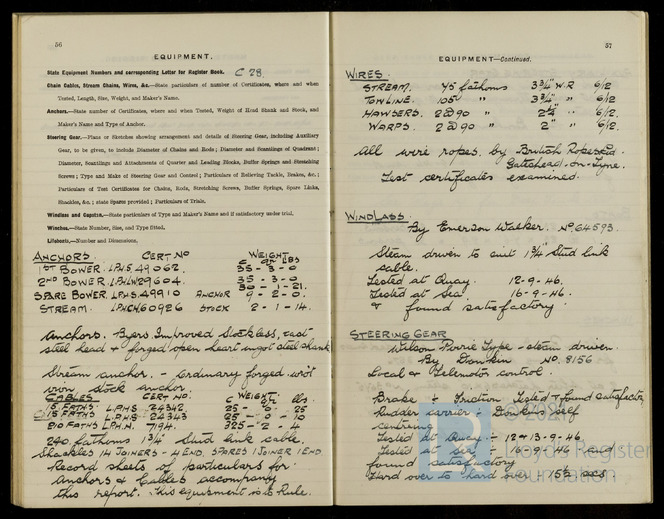 56
EQUIPMENT.
State Equipment Numbers and corresponding Letter for Register Book. C 28.
Chain Cables, Stream Chains, Wires, &c.—State particulars of number of Certificates, where and when
Tested, Length, Size, Weight, and Maker's Name.
Anchors.—State number of Certificates, where and when Tested, Weight of Head Shank and Stock, and
Maker's Name and Type of Anchor.
Steering Gear.—Plans or Sketches showing arrangement and details of Steering Gear, including Auxiliary
Gear, to be given, to include Diameter of Chains and Rods; Diameter and Scantlings of Quadrant;
Diameter, Scantlings and Attachments of Quarter and Leading Blocks, Buffer Springs and Stretching
Screws; Type and Make of Steering Gear and Control; Particulars of Relieving Tackle, Brakes, &c.;
Particulars of Test Certificates for Chains, Rods, Stretching Screws, Buffer Springs, Spare Links,
Shackles, &c.; state Spares provided; Particulars of Trials.
Windlass and Capstan.—State particulars of Type and Maker's Name and if satisfactory under trial.
Winches.—State Number, Size, and Type fitted.
Lifeboats.—Number and Dimensions.
ANCHORS CERT NO WEIGHT
C QR LBS
1ST BOWER. LPHS. 49062. 35 - 3 - 0
2ND BOWER. 29604. 35 - 3 - 0
30 - 1 - 21.
SPARE BOWER. LPHS. 49910 ANCHOR 9 - 2 - 0.
STREAM. LPHCH 60926 STOCK 2 - 1 - 14.
Anchors. Byers Improved Stockless, cast
steel head & forged open heart ingot steel shank
Stream anchor. - Ordinary forged wrot
iron stock anchor.
CABLES CERT. NO. WEIGHT
C QR lbs.
15 FATHS. LPHS. 24342. 25 - 0 - 25
15 FATHS LPHS. 24343 25 - 0 - 10
210 FATHS LPH.N. 7194. 325 - 2 - 4
240 fathoms 1 3/4" Stud link cable.
Shackles 14 JOINERS - 4 END. SPARES 1 JOINER 1 END
Record sheets of particulars for
Anchors & Cables accompany
this report. This equipment is to Rule.
57
EQUIPMENT—Continued.
WIRES.
STREAM. 75 fathoms 3 3/4" W.R 6/12
TOWLINE. 105 " 3 3/4" " 6/12
HAWSERS. 2 @ 90 " 2 1/4" " 6/12.
WARPS. 2 @ 90 " 2" " 6/12.
All wire ropes by British Ropes Ltd.
Gateshead-on-Tyne.
Test certificates examined.
WINDLASS.
By Emerson Walker. No. 64593.
Steam driven to suit 1 3/4" Stud link
cable.
Tested at Quay. 12-9-46.
Tested at Sea. 16-9-46.
& found satisfactory.
STEERING GEAR
Wilson Pirrie Type - steam driven.
By Donkin No. 8156
Local & Telemotor control.
Brake :- Friction Tested & found satisfactory
Rudder carrier :- Donkins self
centring
Tested at Quay :- 12 & 13-9-46.
Tested at sea :- 16-9-46 and
found satisfactory
Hard over to hard over 15 1/2 secs.
Lloyds Register
Foundation